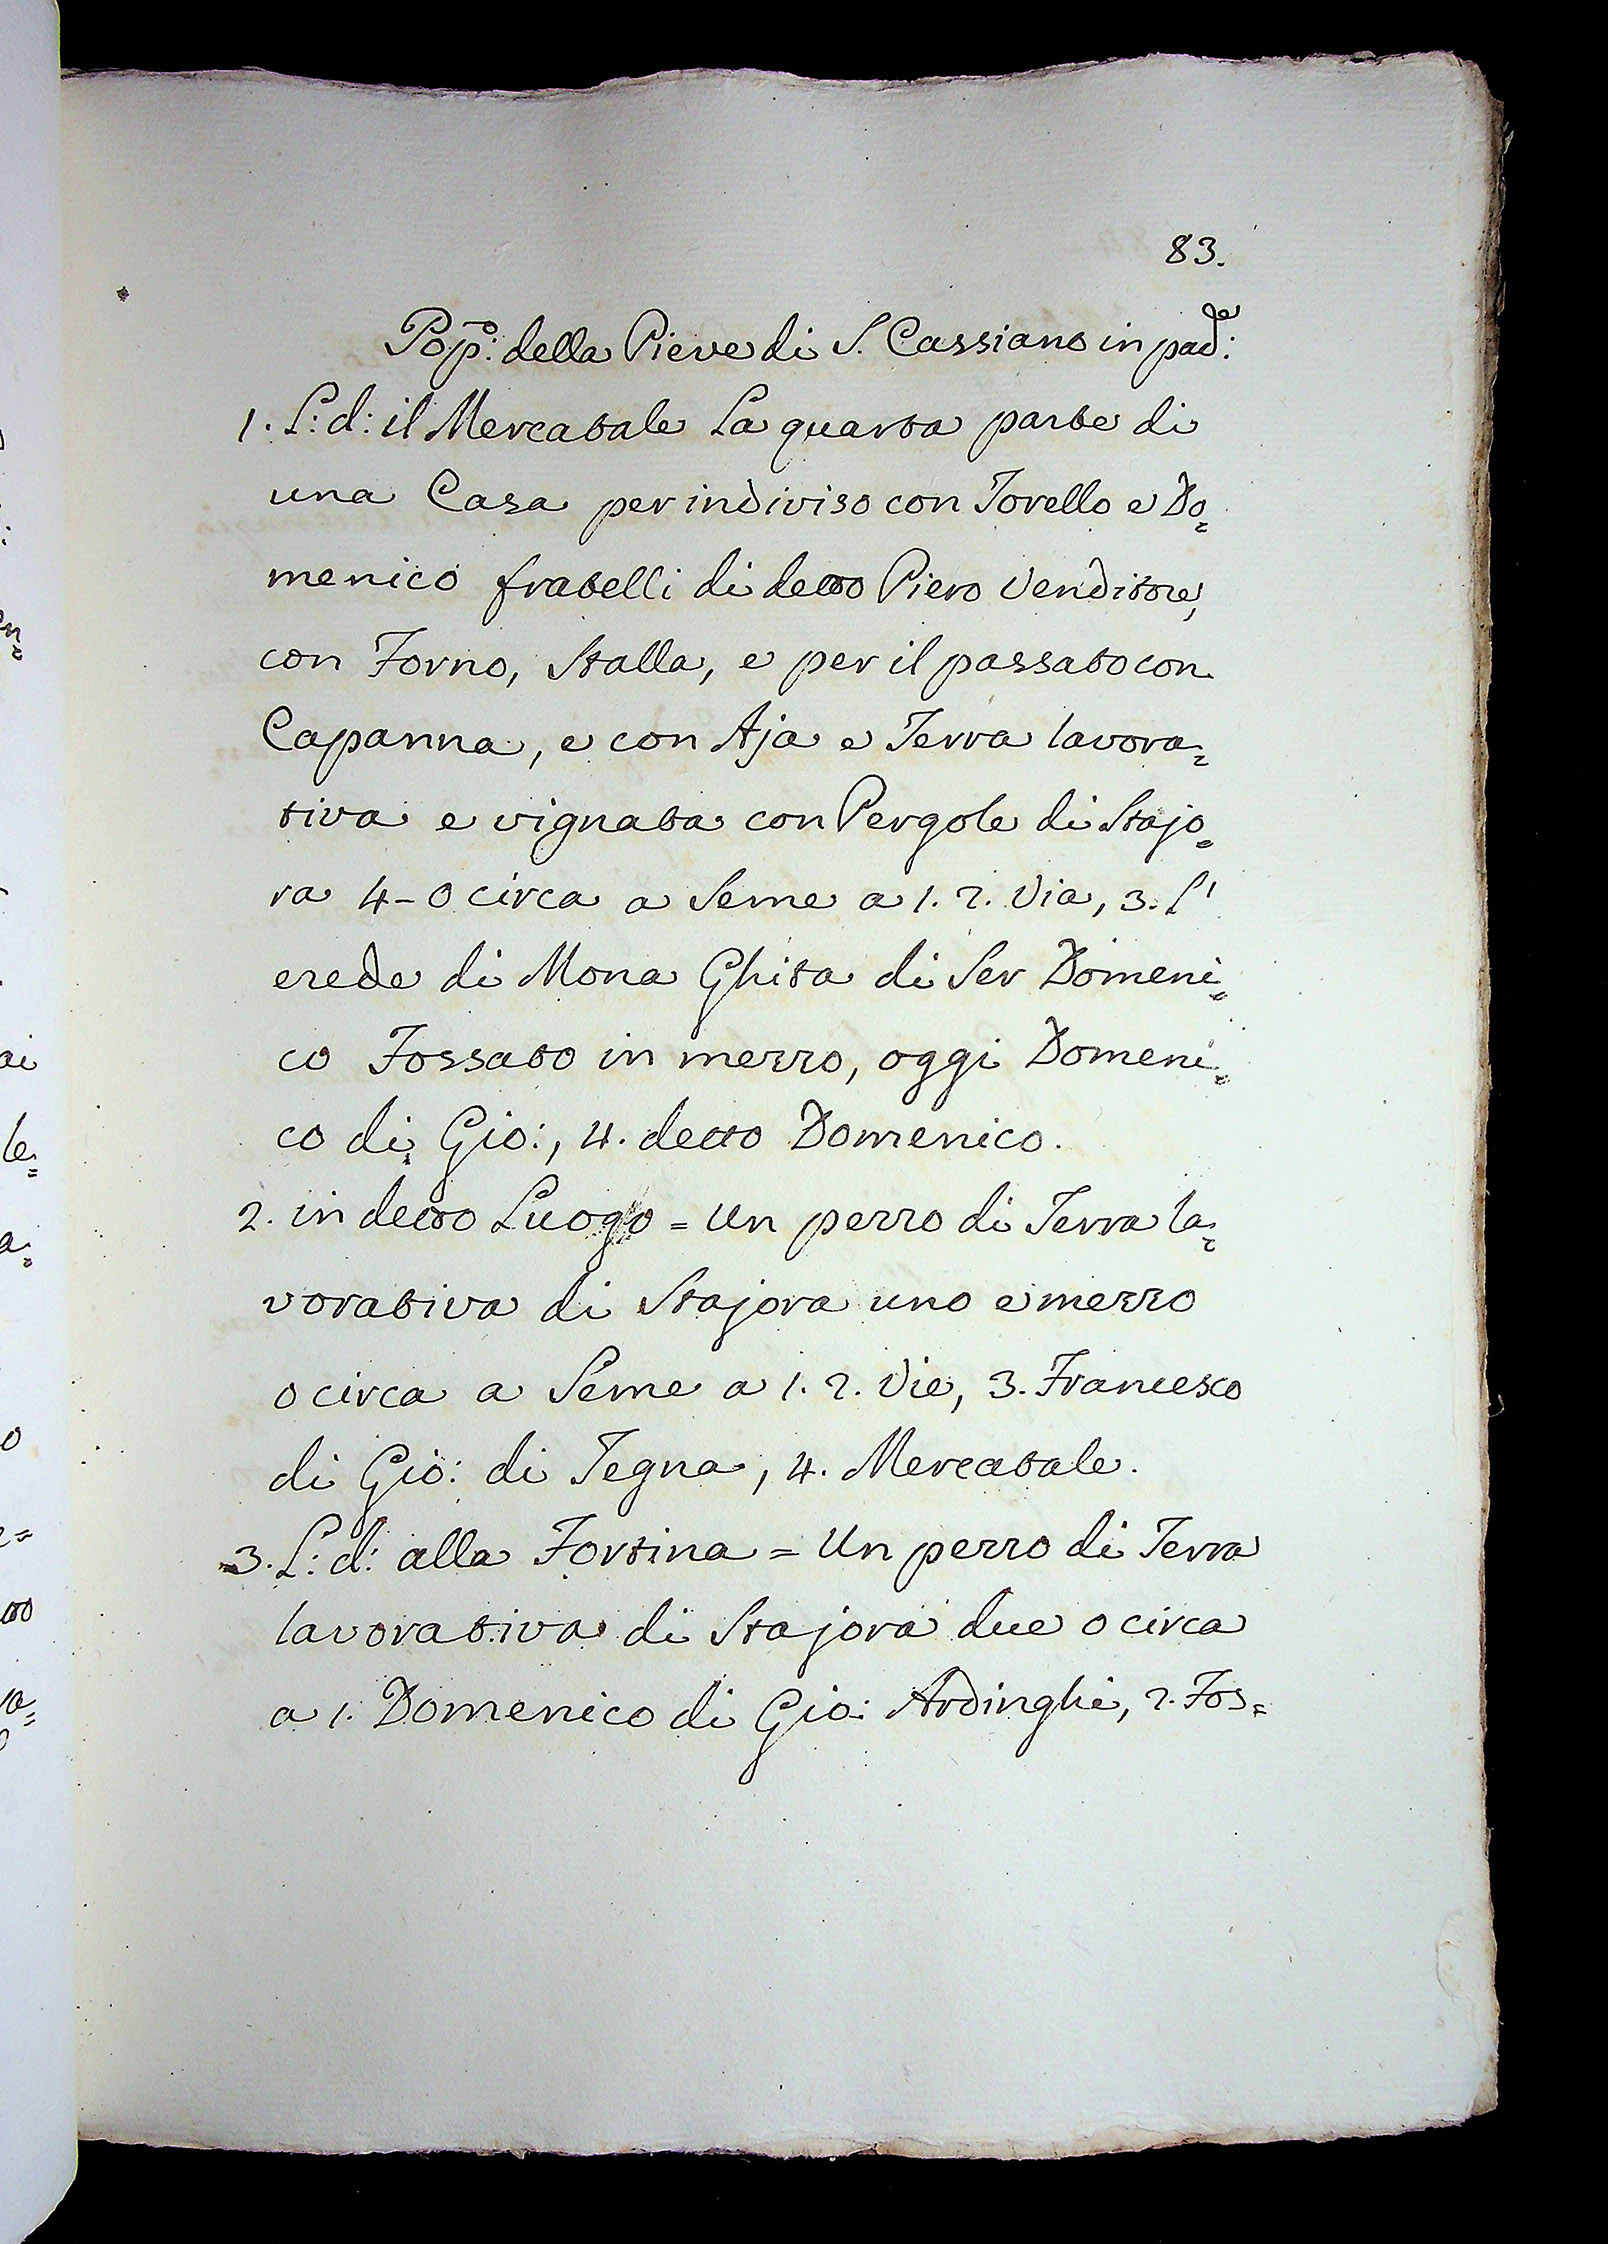 83.
Pop.o: della Pieve di S. Cassiano in pad.e:
1. L: d: il Mercatale La quarta parte di
una Casa per indiviso con Torello e Do=
menico fratelli di detto Piero Venditore,
con Forno, Stalla, e per il passato con
Capanna, e con Aja e Terra lavora=
tiva e vignata con Pergole di Stajo=
ra 4 – o circa a Seme a 1. 2. Via, 3. L'
erede di Mona Ghita di Ser Domeni=
co Fossato in mezzo, oggi Domeni=
co di Gio:, 4. detto Domenico.
2. in detto Luogo = Un pezzo di Terra la=
vorativa di Stajora uno e mezzo
o circa a Seme a 1. 2. Vie, 3. Francesco
di Gio: di Tegna, 4. Mercatale.
3. L: d: alla Fortina = Un pezzo di Terra
lavorativa di Stajora due o circa
a 1. Domenico di Gio: Ardinghi, 2. Fos=